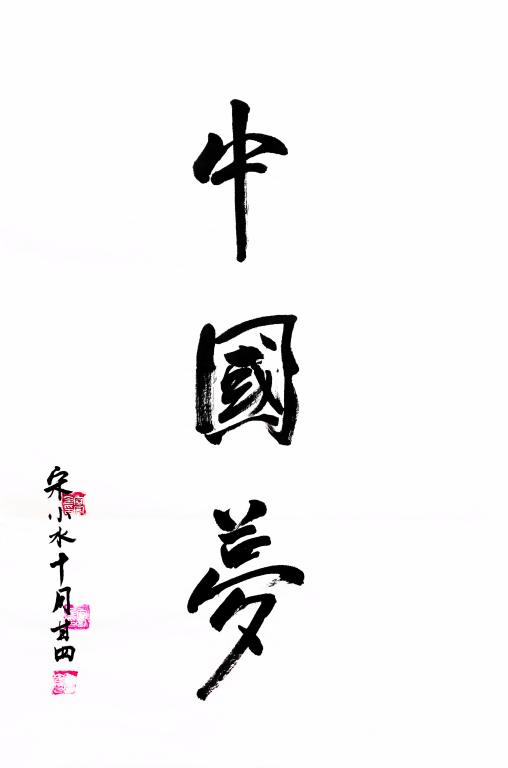 中國夢
宋小水十月廿四